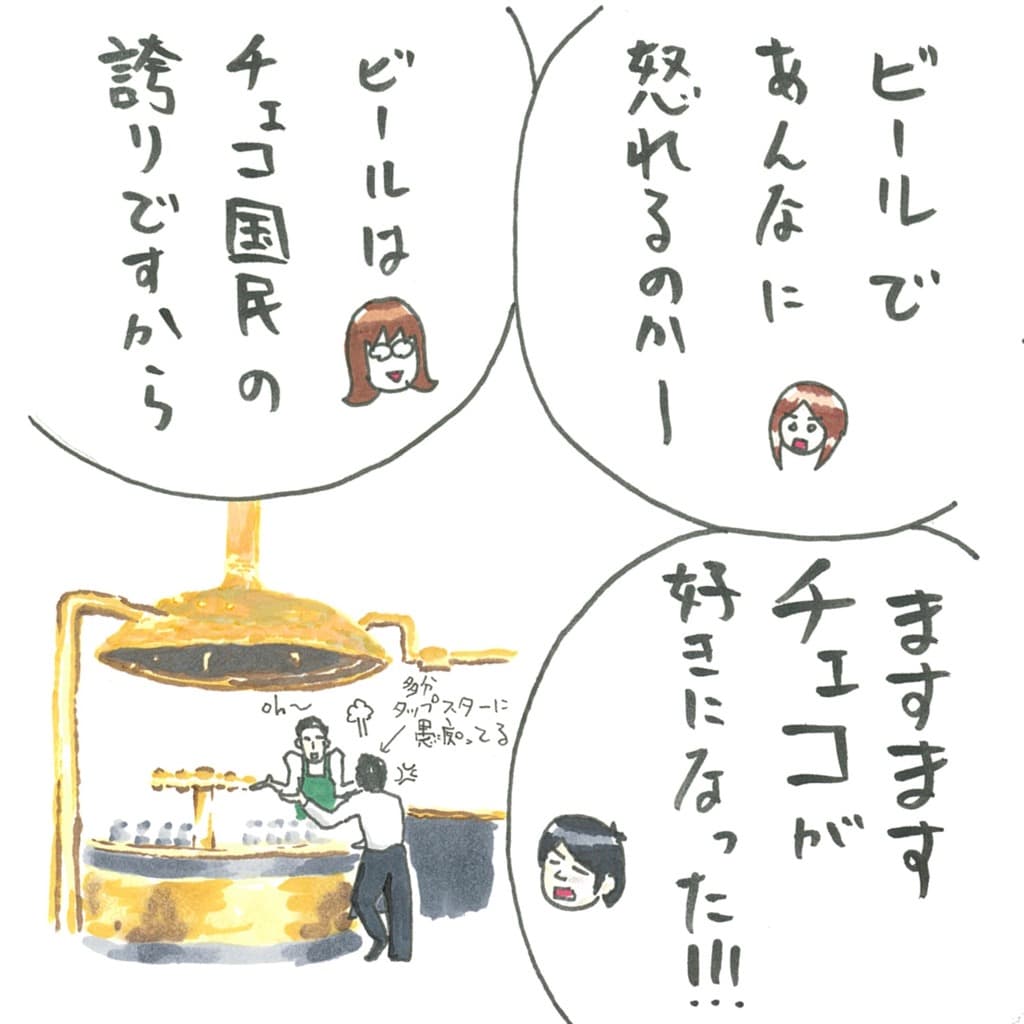 ビールで
あんなに
怒れるのかー
ビールは
チェコ国民の
誇りですから
ますます
チェコが
好きになった!!!
oh〜
多分
タップスターに
愚痴ってる